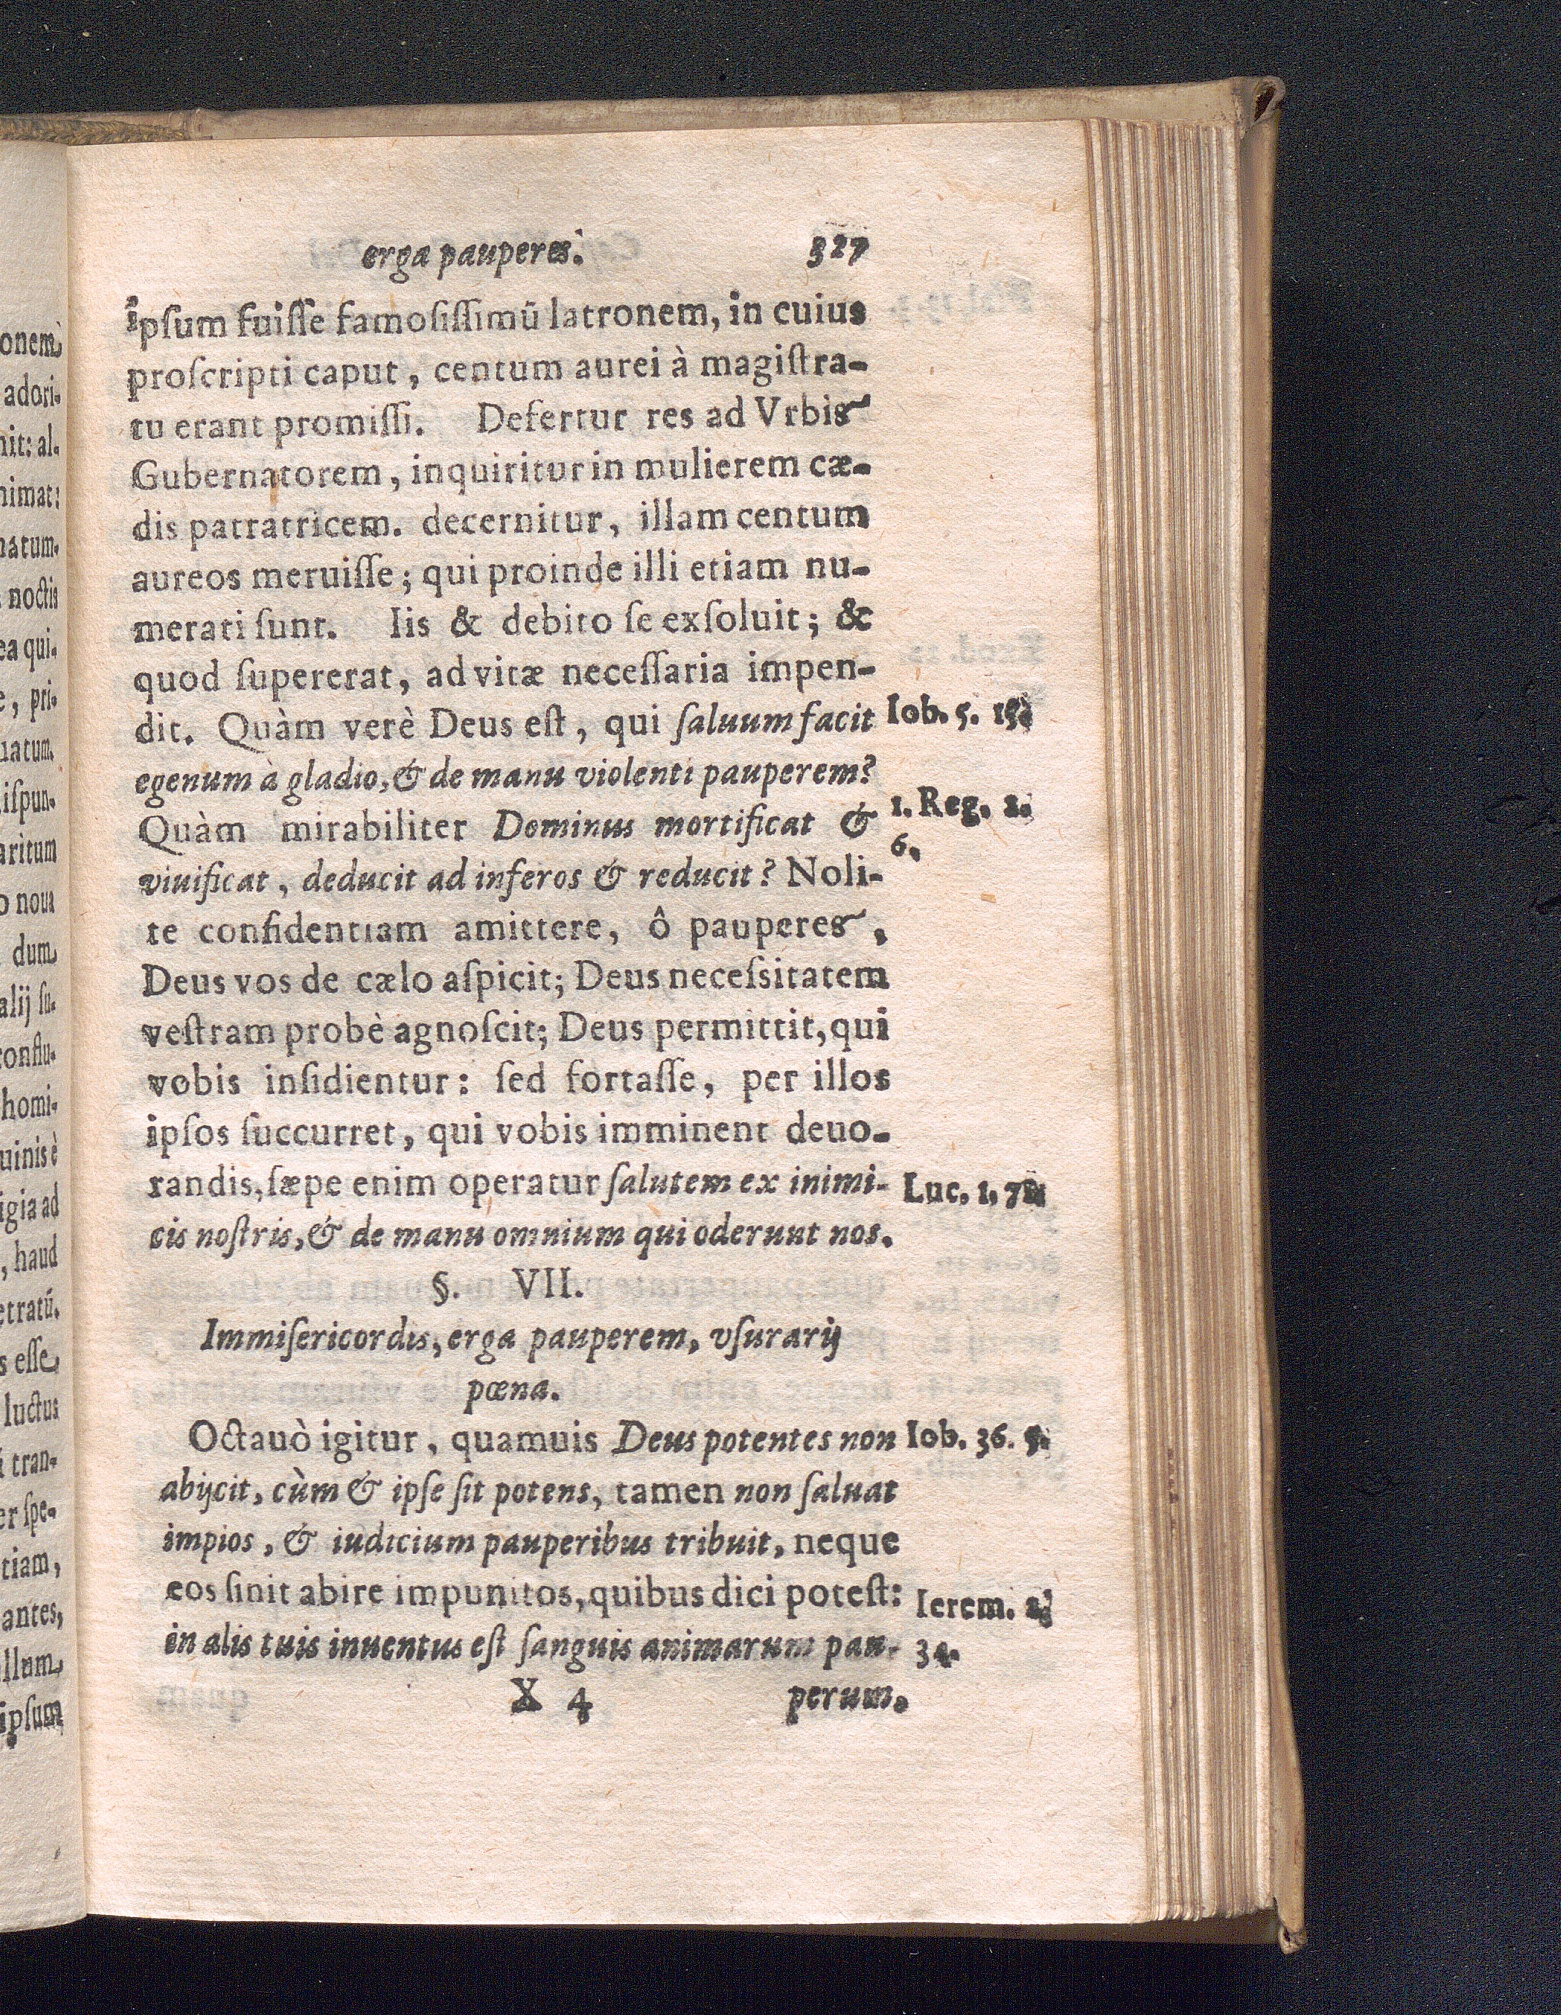 erga pauperes. 327
ipſum fuiſſe famoſiſſimū latronem, in cuius
proſcripti caput, centum aurei à magiſtra-
tu erant promiſſi. Defertur res ad Vrbis
Gubernatorem, inquiritur in mulierem cæ-
dis patratricem. decernitur, illam centum
aureos meruiſſe; qui proinde illi etiam nu-
merati ſunt. Iis & debito ſe exſoluit; &
quod ſupererat, ad vitæ neceſſaria impen-
dit. Quàm verè Deus eſt, qui ſaluum facit
Iob. 5. 15.
egenum à gladio, & de manu violenti pauperem?
Quàm mirabiliter Dominus mortificat &
1. Reg. 2.
6.
viuificat, deducit ad inferos & reducit? Noli-
te confidentiam amittere, ô pauperes,
Deus vos de cælo aſpicit; Deus neceſsitatem
veſtram probè agnoſcit; Deus permittit, qui
vobis inſidientur: ſed fortaſſe, per illos
ipſos ſuccurret, qui vobis imminent deuo-
randis, ſæpe enim operatur ſalutem ex inimi-
Luc. 1. 71.
cis noſtris, & de manu omnium qui oderunt nos.
§. VII.
Immiſericordis, erga pauperem, vſurarij
pœna.
Octauò igitur, quamuis Deus potentes non
Iob. 36. 5.
abijcit, cùm & ipſe ſit potens, tamen non ſaluat
impios, & iudicium pauperibus tribuit, neque
eos ſinit abire impunitos, quibus dici poteſt:
Ierem. 2.
in alis tuis inuentus eſt ſanguis animarum pau-
34.
X 4 perum.
onem
adori-
nit: al-
nimat:
natum.
noctis
ea qui-
e, pri-
uatum.
iſpun-
aritum
o noua
dum
alij ſu-
conflu-
homi-
uinis è
igia ad
, haud
etratū.
s eſſe
luctus
i tran-
er ſpe-
tiam,
antes,
llum
ipſum